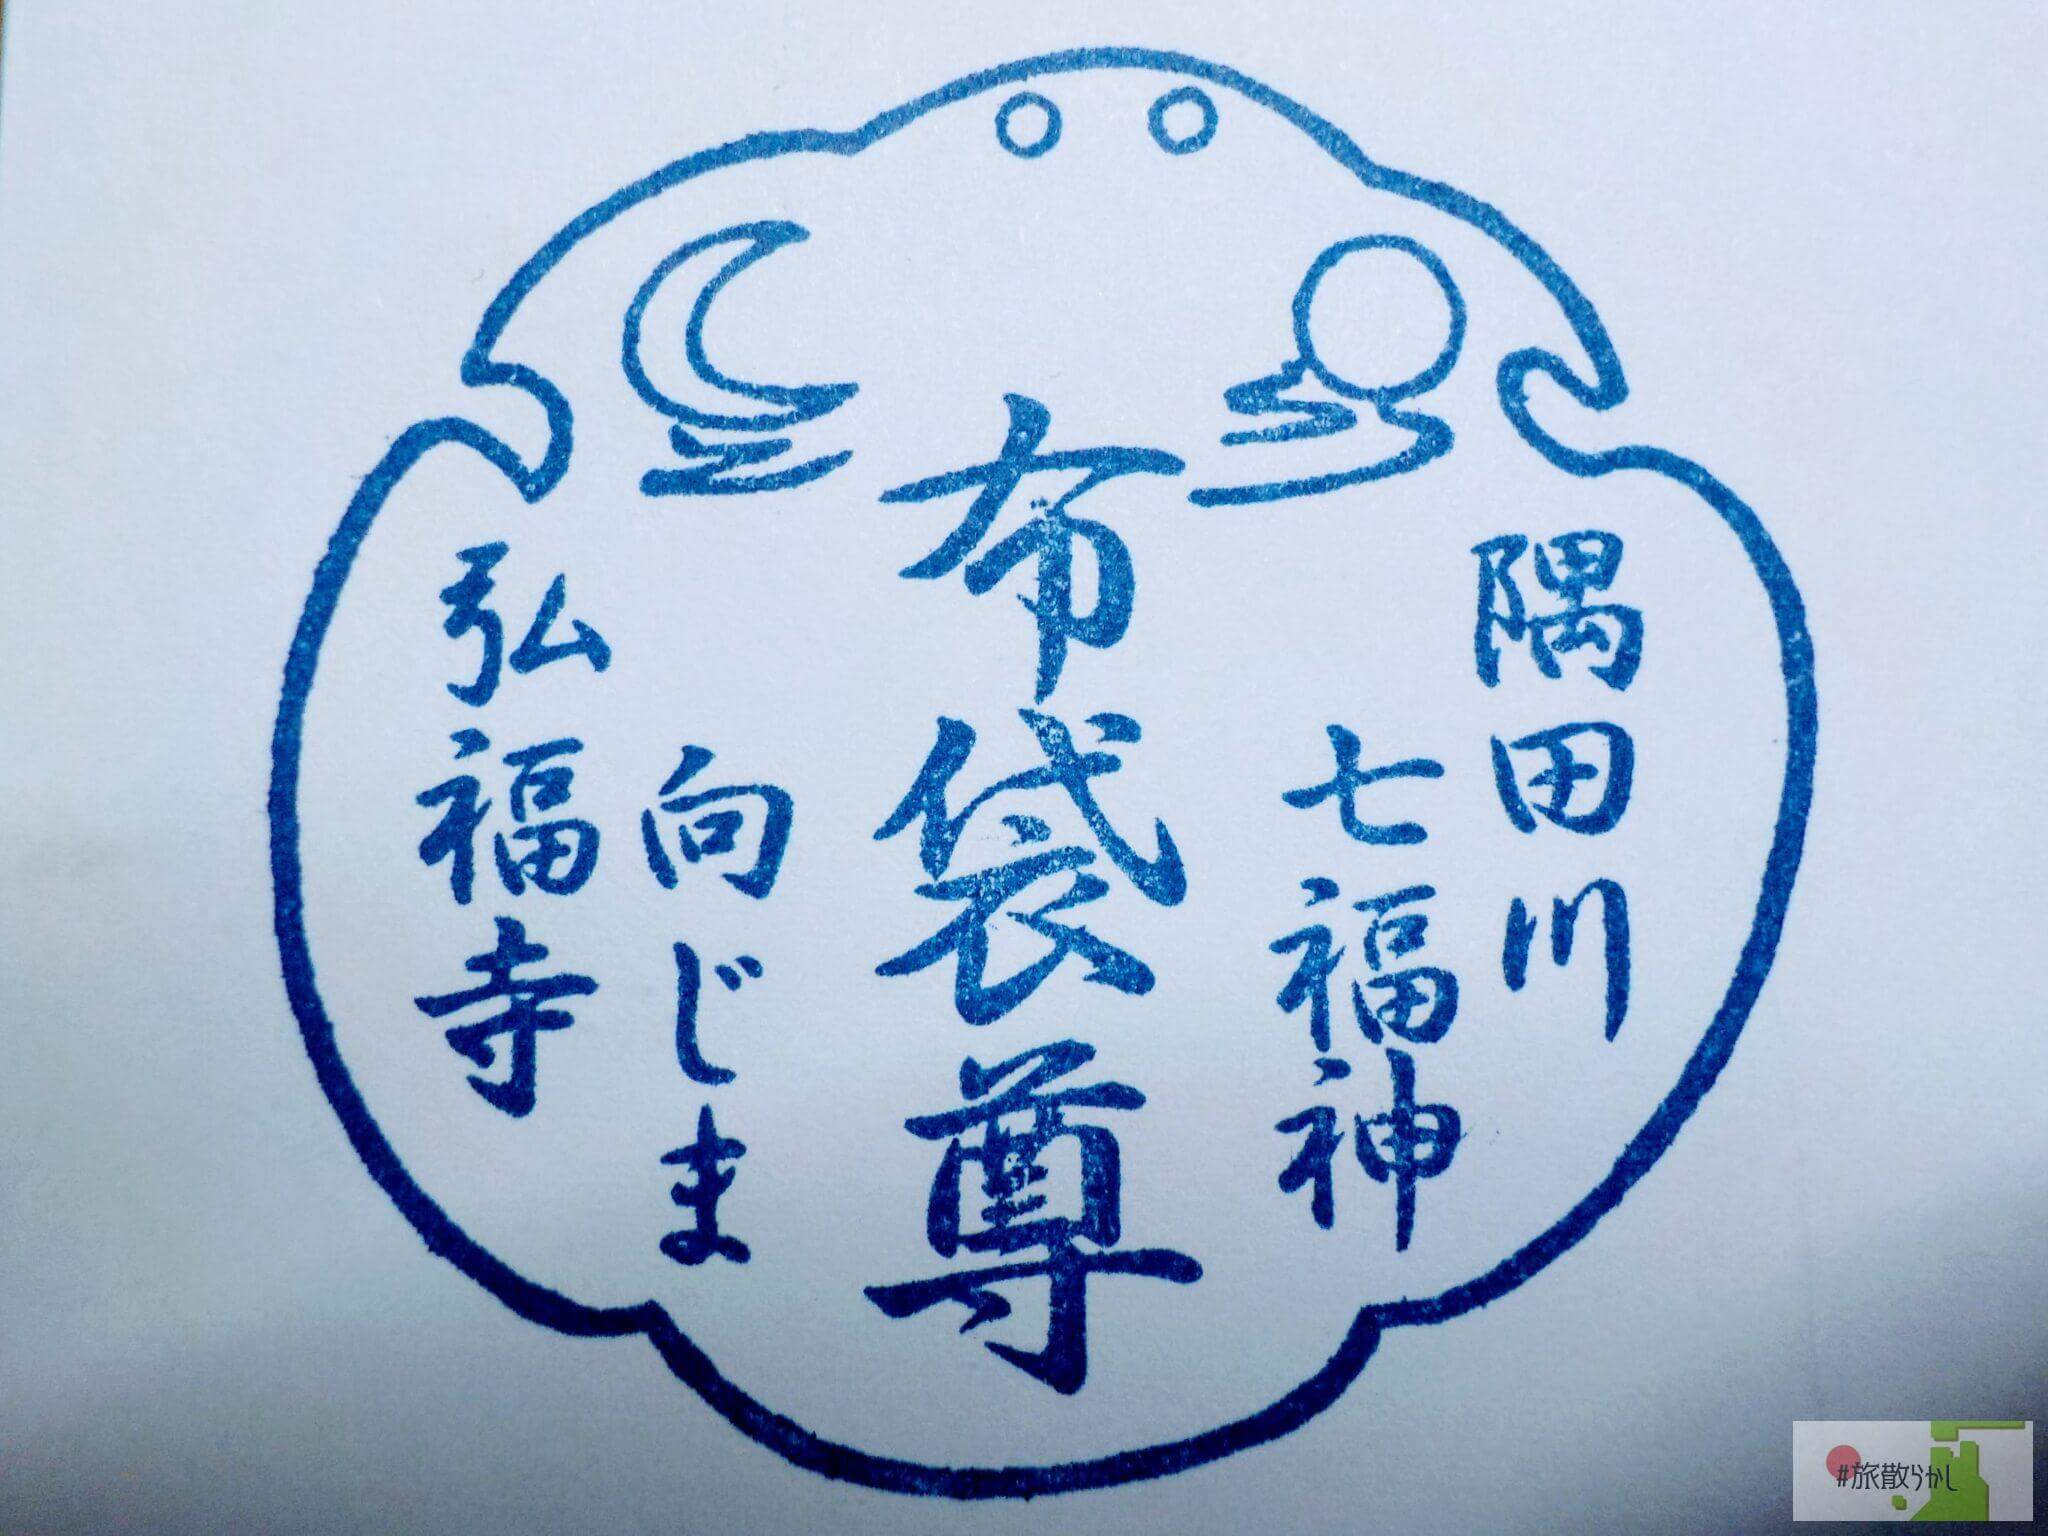 隅田川
七福神
布袋尊
向じま
弘福寺
#旅散らかし